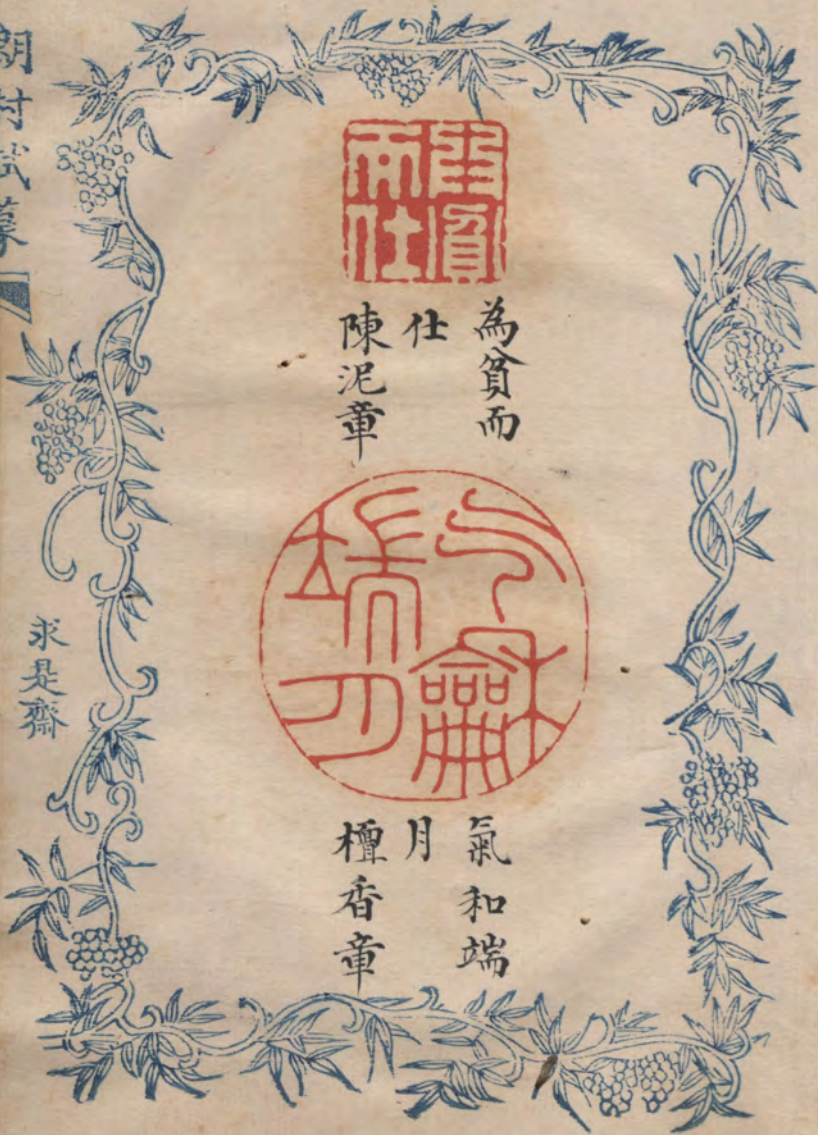 為貧
而仕
為貧而
仕
陳泥章
气龢
端月
氣和端
月
檀香章
求是齋